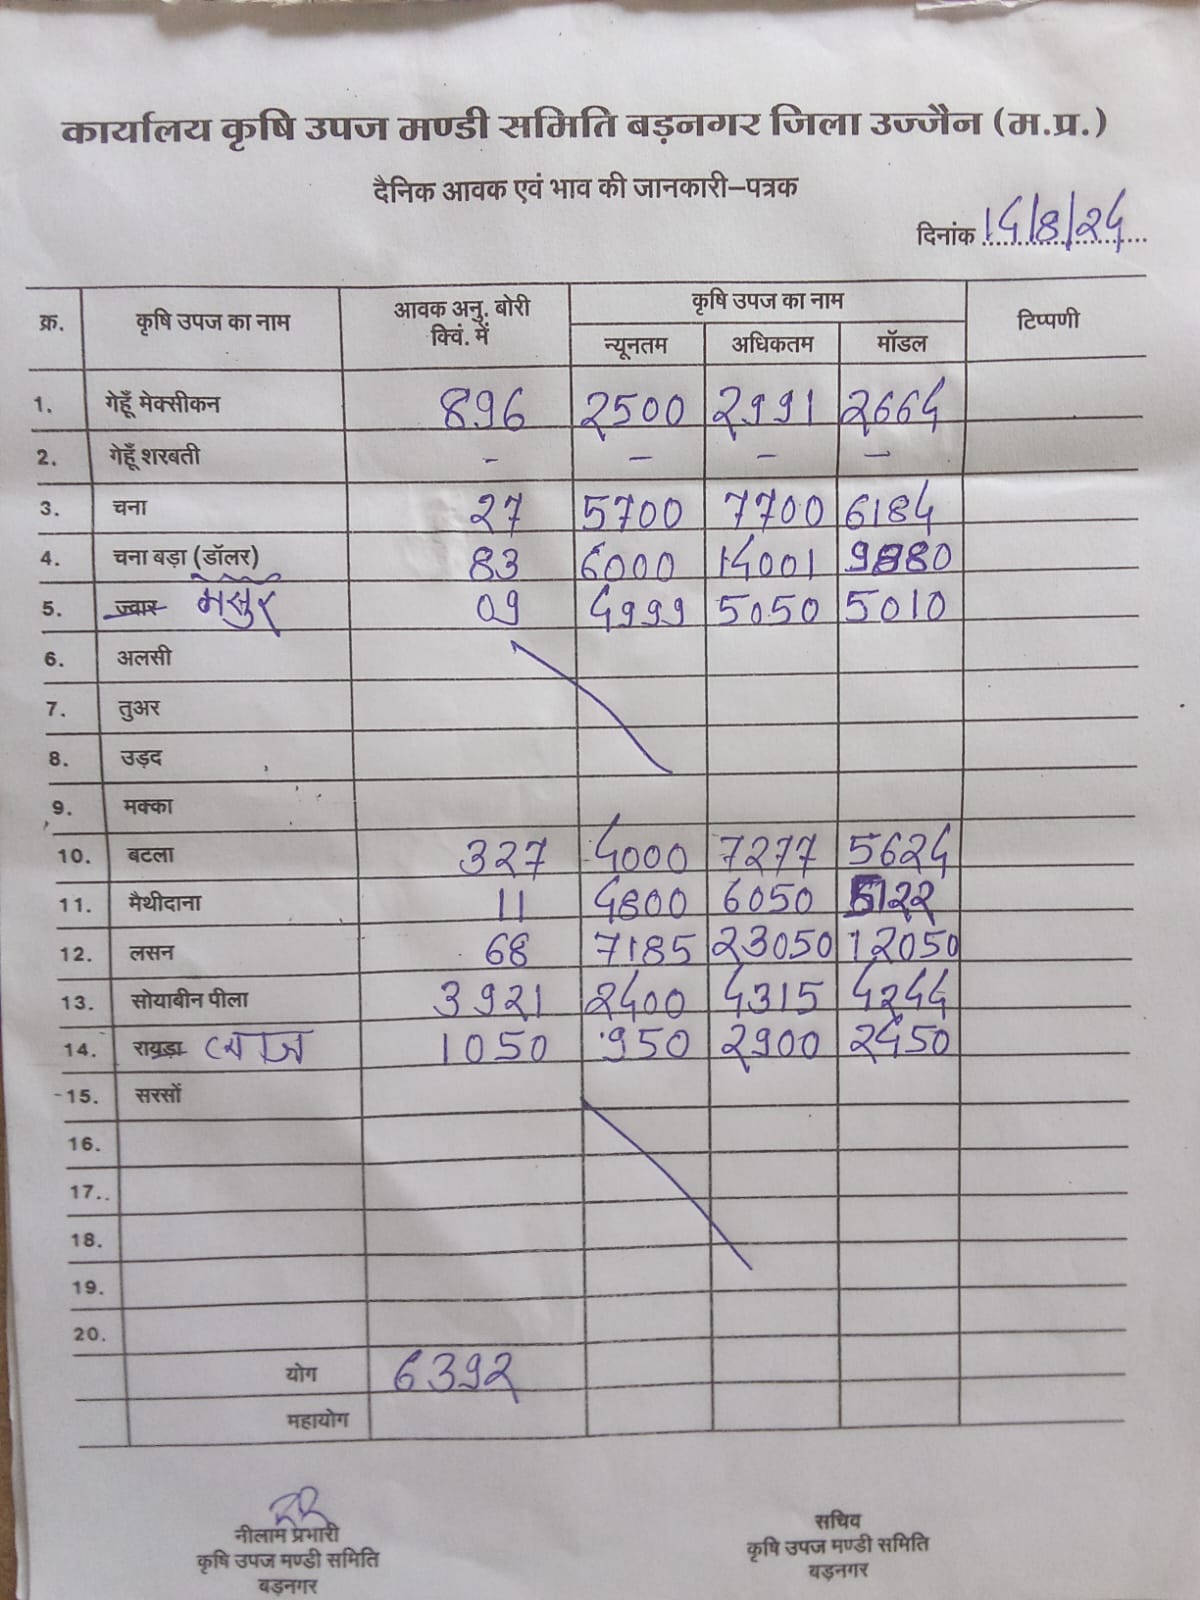 कार्यालय कृषि उपज मण्डी समिति बड़नगर जिला उज्जैन (म.प्र.)
दैनिक आवक एवं भाव की जानकारी–पत्रक
दिनांक 14/8/24
क्र. कृषि उपज का नाम आवक अनु. बोरी क्विं. में कृषि उपज का नाम टिप्पणी
न्यूनतम अधिकतम मॉडल
1. गेहूँ मेक्सीकन 896 2500 2991 2664
2. गेहूँ शरबती - - - -
3. चना 27 5700 7700 6184
4. चना बड़ा (डॉलर) 83 6000 14001 9880
5. ज्वार मसुर 09 4999 5050 5010
6. अलसी
7. तुअर
8. उड़द
9. मक्का
10. बटला 327 4000 7277 5624
11. मैथीदाना 11 4800 6050 5122
12. लसन 68 7185 23050 12050
13. सोयाबीन पीला 3921 2400 4315 4244
14. रायड़ा प्याज 1050 950 2900 2450
15. सरसों
16.
17..
18.
19.
20.
योग 6392
महायोग
नीलाम प्रभारी
कृषि उपज मण्डी समिति
बड़नगर
सचिव
कृषि उपज मण्डी समिति
बड़नगर